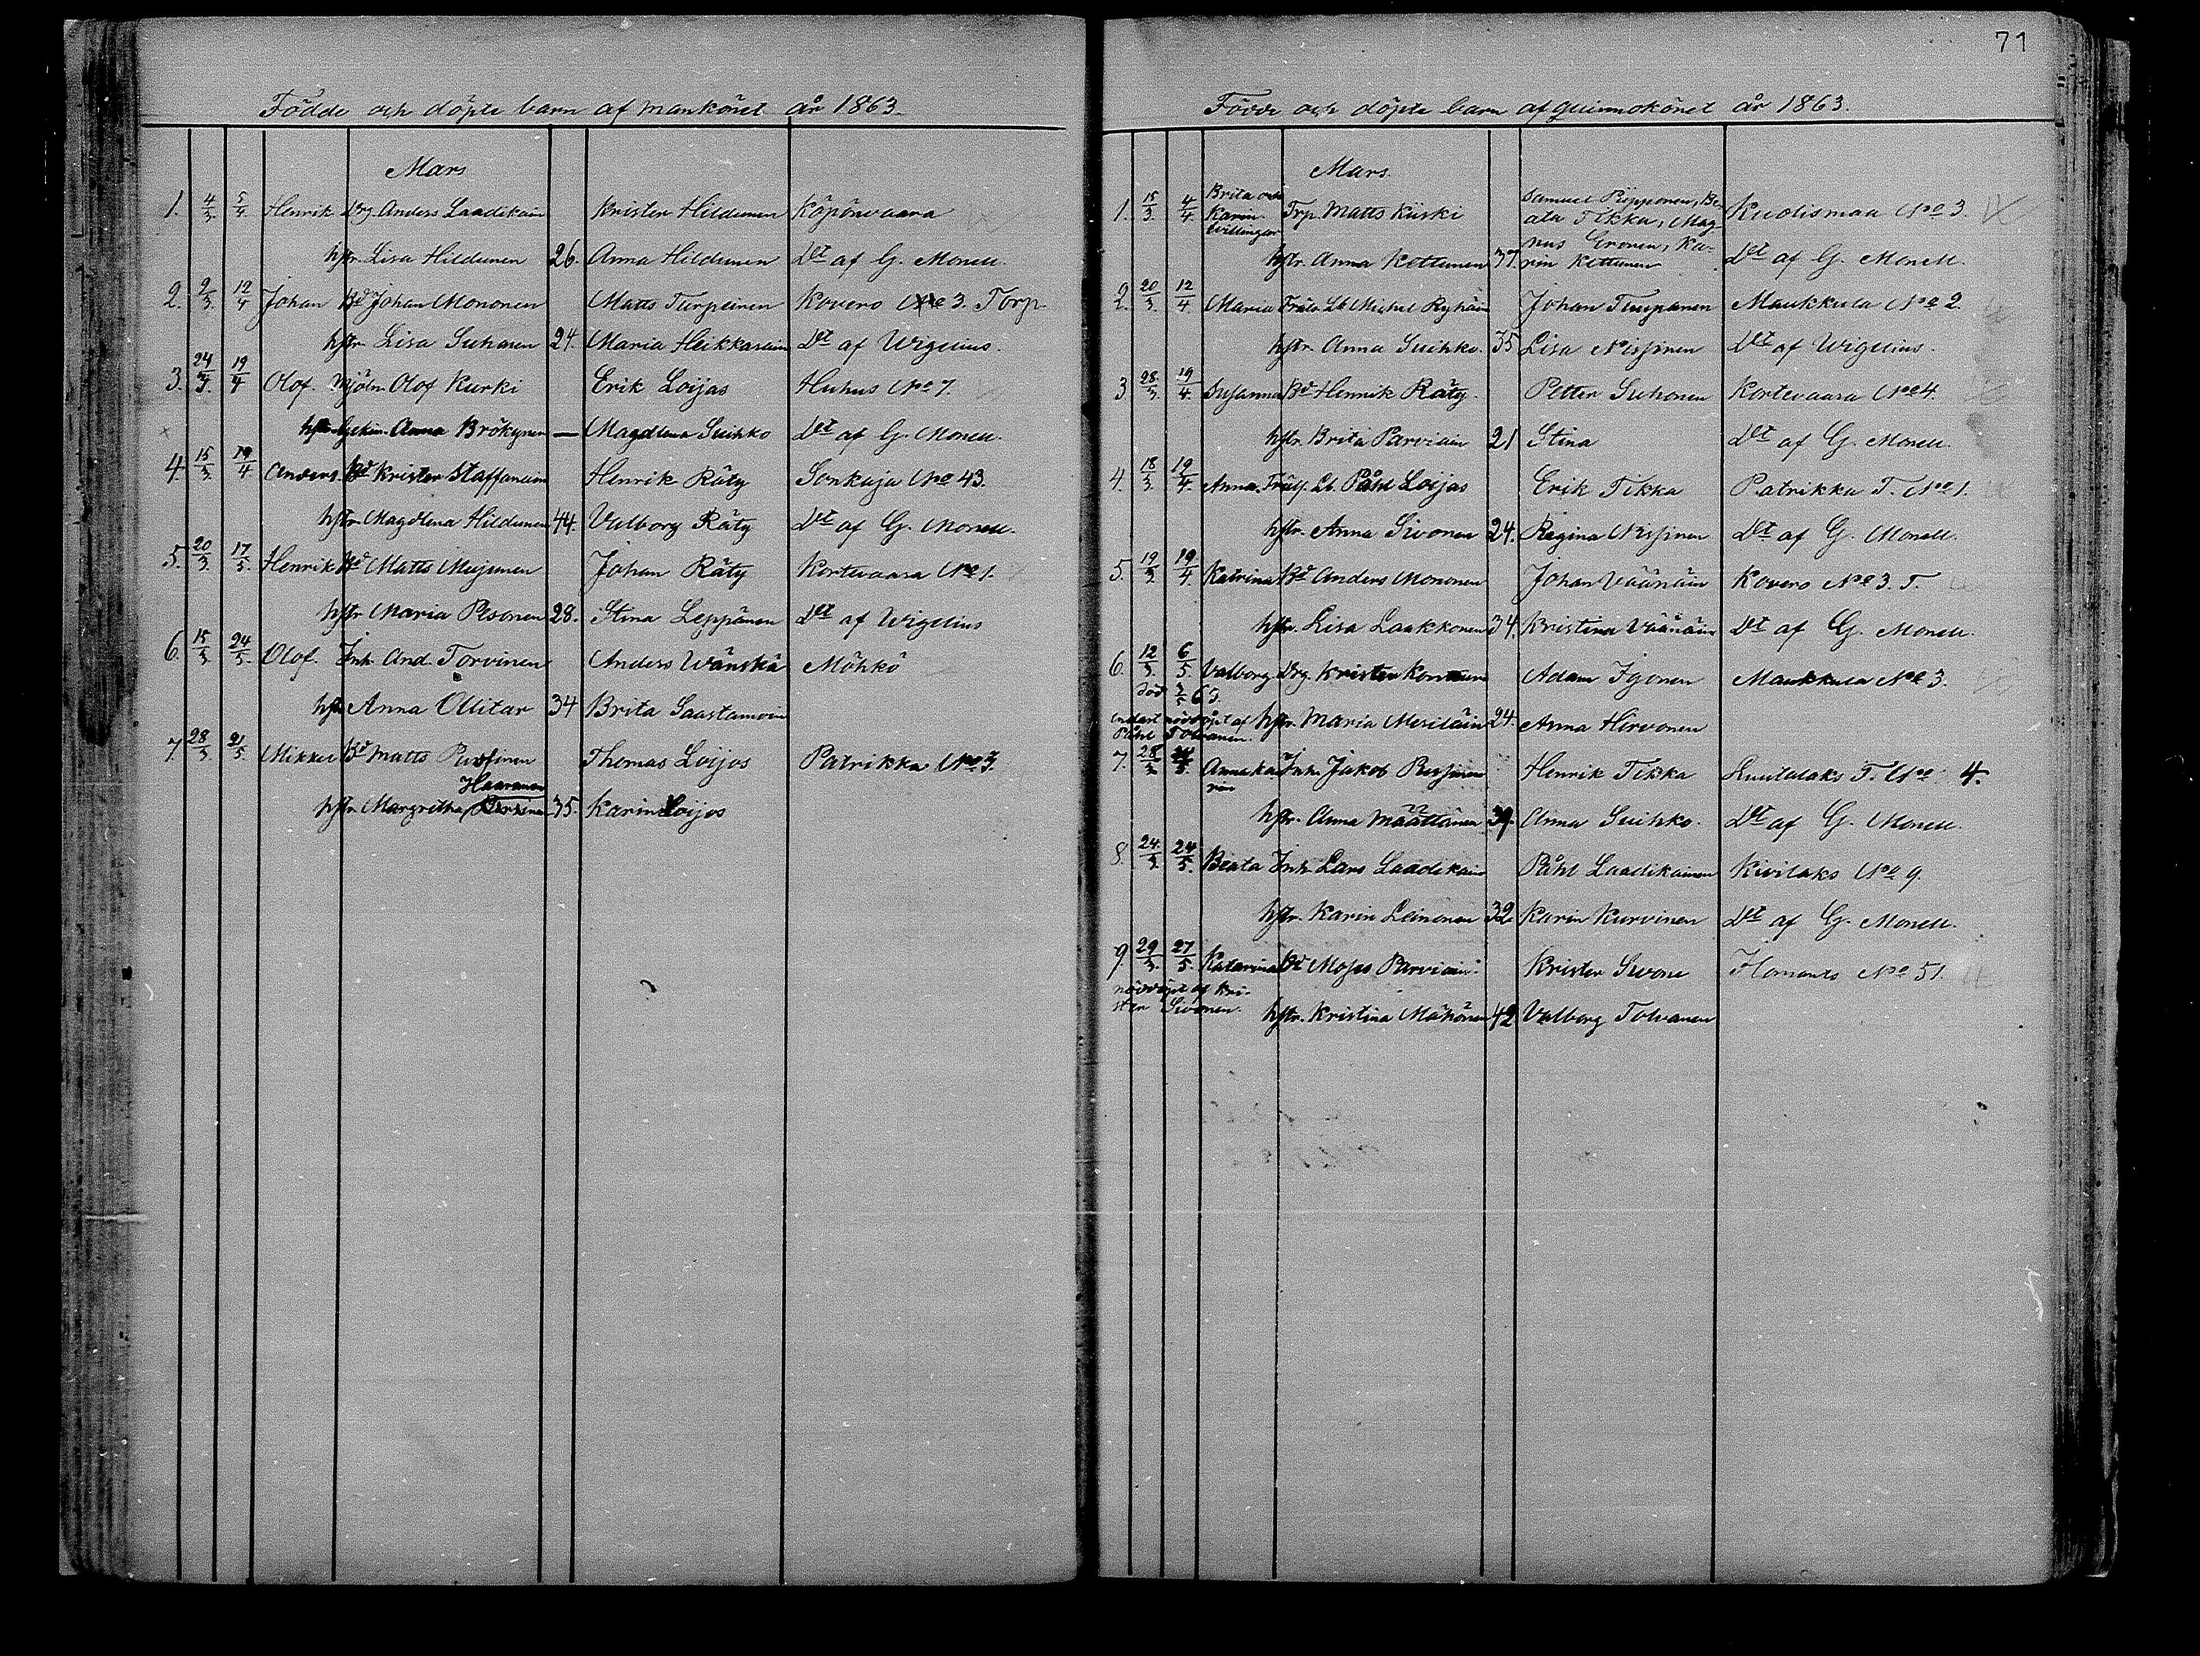 71
Födde och döpte barn af mankönet år 1863.
Mars
1. 4/3. 5/4 Henrik Drg. Anders Laadikain Krister Hildunen Köpönvaara
hstr. Lisa Hildunen 26. Anna Hildunen Dct af G. Monell.
2. 2/3. 12/4 Johan Bd Johan Mononen Matts Turpeinen Kovero No 3. Torp
hstr. Lisa Suhonen 24. Maria Heikkarain Dct af Wigelius.
3. 24/3. 19/4 Olof. Mjöln. Olof Kurki Erik Loijas Huhus No 7.
hstr. Anna Brökynen — Magdlena Suihko Dct af G. Monell.
4. 15/3. 19/4 Anders. Bd Krister Staffanain Henrik Räty Sonkaja No 43.
hstr. Magdlena Hildunen 44. Valborg Räty Dct af G. Monell.
5. 20/3. 17/5. Henrik Bd Matts Mujunen Johan Räty Kortevaara No 1.
hstr. Maria Pesonen 28. Stina Leppänen Dct af Wigelius
6. 15/3. 24/5. Olof. Inh. And. Torvinen Anders Wänskä Möhkö
hstr. Anna Ollitar 34 Brita Saastamoin
7. 28/3. 21/5. Mikkel Bd Matts Thomas Loijos Patrikka No 3.
Haaranen
hstr. Margretha 35. Karin Loijos
Födde och döpte barn af quinnokönet år 1863.
Mars.
1. 15/3. 4/4 Brita och Karin tvillingar Trp. Matts Kiiski Samuel Pipponen, Beata Tikka, Magnus Eronen, Karin Kettunen Kuolismaa No 3.
hstr. Anna Kettunen 37. Dct af G. Monell.
2. 20/3. 12/4 Maria Lb. Michel Ryhäin Johan Turpanen Maukkula No 2.
hstr. Anna Suihko. 35 Lisa Nissinen Dct af Wigelius.
3 28/3. 19/4. Susanna Bd Henrik Räty. Petter Suhonen Kortevaara No 4.
hstr. Brita Parviain 21 Stina Dct af G. Monell.
4. 18/3. 19/4. Anna. Lb. Påhl Loijas Erik Tikka Patrikka T. No 1.
hstr. Anna Sivonen 24. Regina Nissinen Dct af G. Monell.
5. 19/3. 19/4 Katrina Bd Anders Mononen Johan Väänäin Kovero No 3. T.
hstr. Lisa Laakkonen 34. Kristina Väänäin Dct af G. Monell.
6. 12/3. 6/5 Valborg Drg. Krister Adam Igonen Maukkula No 3.
död 3/5 63.
endast nöddöpt af Påhl Tolvanen.
hstr. Maria Meriläin 24. Anna Hirvonen
7. 28/3 24/5. Anna Karin Inh. Jakob Henrik Tikka Luutalaks T. No 4.
hstr. Anna Määttänen 39. Anna Suihko. Dct af G. Monell.
8. 24/3. 24/5. Beata Inh. Lars Laadikain Påhl Laadikainen Kivilaks No 9.
hstr. Karin Leinonen 32 Karin Kurvinen Dct af G. Monell.
9. 29/3. 27/5. Katarina Bd Moses Parviain. Krister Sivone Ilomants No 51.
nöddöpt af Krister Sivonen.
hstr. Kristina Mähönen 42 Valborg Tolvanen